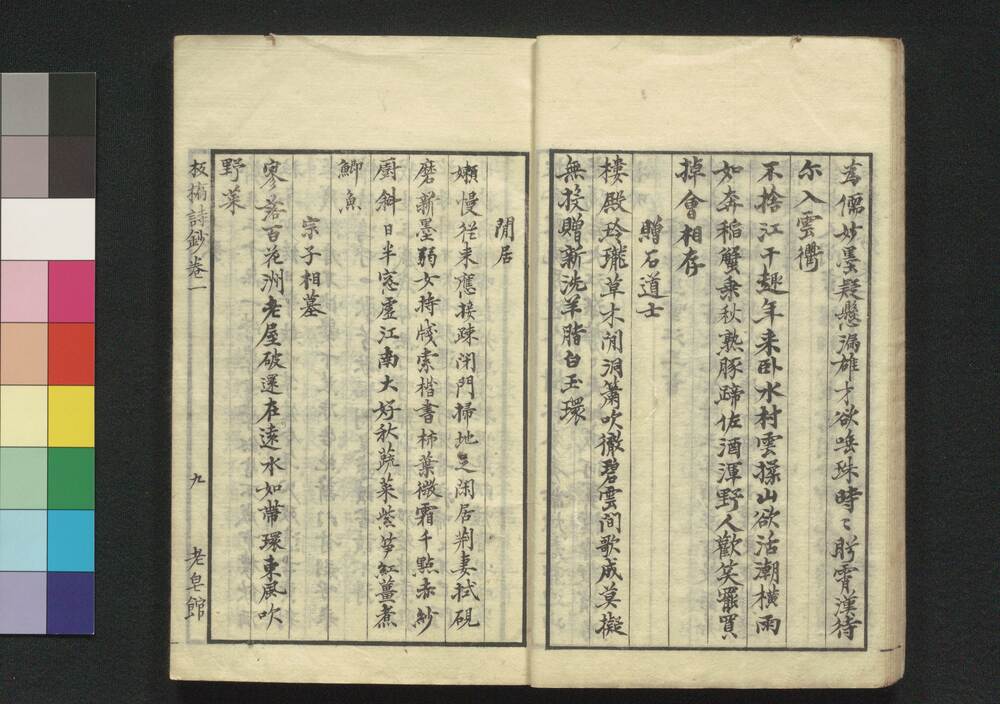 為儒妙墨疑懸漏雄才欲唾珠時〻盻霄漢待
尓入雲衢
不捨江干趣年来卧水村雲揉山欲活潮横雨
如奔稲蟹乗秋熟豚蹄佐酒渾野人歡笑罷買
掉會相存
贈石道士
楼殿玲瓏草木閒洞簫吹徹碧雲间歌成莫擬
無投贈新洗羊脂白玉環
閒居
嬾慢從来應接疎闭門掃地足闲居荆妻拭硯
磨新墨弱女持牋索楷書柿葉微霜千點赤紗
厨斜日半窓虚江南大好秋蔬菜紫笋紅薑煮
鯽魚
宗子相墓
寥落百花洲老屋破還在遠水如帶環東風吹
野菜
板橋詩鈔卷一
九
老皂館